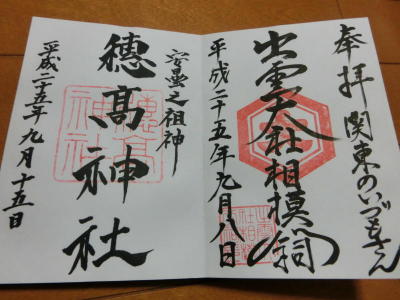 奉拝 関東のいづもさん
出雲大社相模分祠
平成二十五年九月八日
安曇之祖神
穂髙神社
平成二十五年九月十五日
穂高神社